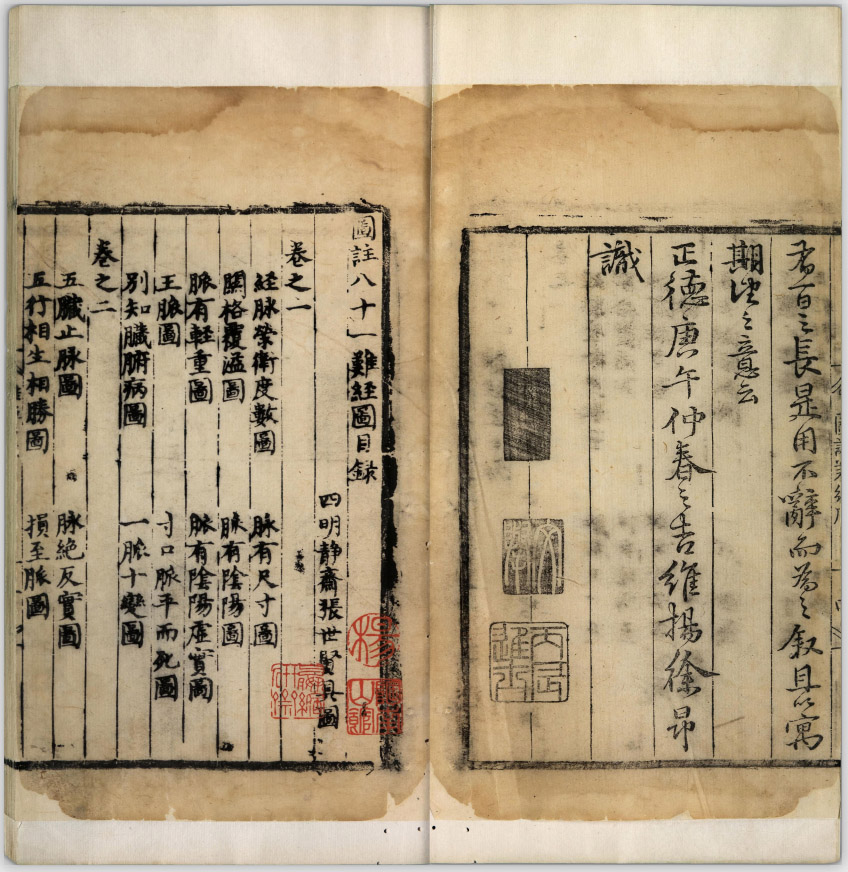 者百之長是用不辭而為之叙且以寓
期望之意云
正德庚午仲春之吉維揚徐昂
識
圖註八十一難經圖目錄
四明靜齋張世賢具圖
卷之一
經脉榮衛度數圖 脉有尺寸圖
關格覆溢圖 脉有陰陽圖
脈有輕重圖 脈有陰陽虛實圖
王脈圖 寸口脈平而死圖
別知臟腑病圖 一脈十變圖
卷之二
五臟止脉圖 脉絕反實圖
五行相生相勝圖 損至脈圖